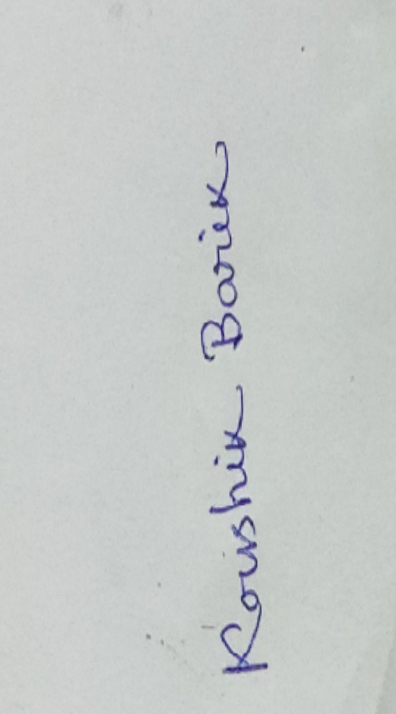 Koushik Barik